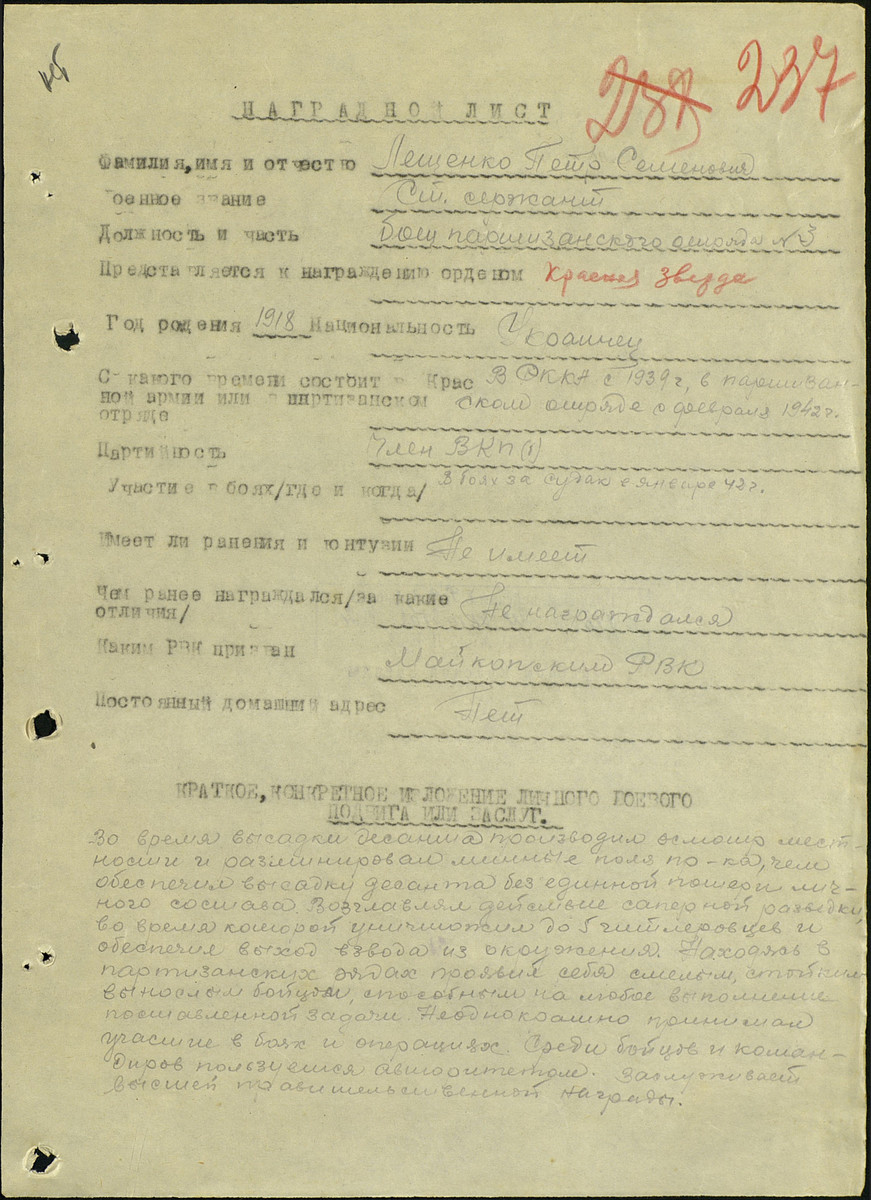 238 237
НАГРАДНОЙ ЛИСТ
Фамилия, имя и отчество Лещенко Петр Семенович
Военное звание Ст. сержант
Должность и часть Боец партизанского отряда № 3
Представляется к награждению орденом Красная Звезда
Год рождения 1918 Национальность Украинец
С какого времени состоит в Крас В РККА с 1939 г, в партизан-
ной армии или в партизанском ском отряде с февраля 1942 г.
отряде
Партийность Член ВКП(б)
Участие в боях/где и когда/ В боях за Судак в январе 42 г.
Имеет ли ранения и контузии Не имеет
Чем ранее награждался/за какие Не награждался
отличия/
Каким РВК призван Майкопским РВК
Постоянный домашний адрес Нет
КРАТКОЕ, КОНКРЕТНОЕ ИЗЛОЖЕНИЕ ЛИЧНОГО БОЕВОГО
ПОДВИГА ИЛИ ЗАСЛУГ.
Во время высадки десанта производил осмотр мест-
ности и разминировал минные поля пр-ка, чем
обеспечил высадку десанта без единной потери лич-
ного состава. Возглавлял действие саперной разведки,
во время которой уничтожил до 5 гитлеровцев и
обеспечил выход взвода из окружения. Находясь в
партизанских рядах проявил себя смелым, стойким
выносл​ым бойцом, способным на любое выполнение
поставленной задачи. Неоднократно принимал
участие в боях и операциях. Среди бойцов и коман-
диров пользуется авторитетом. Заслуживает
высшей правительственной награды.